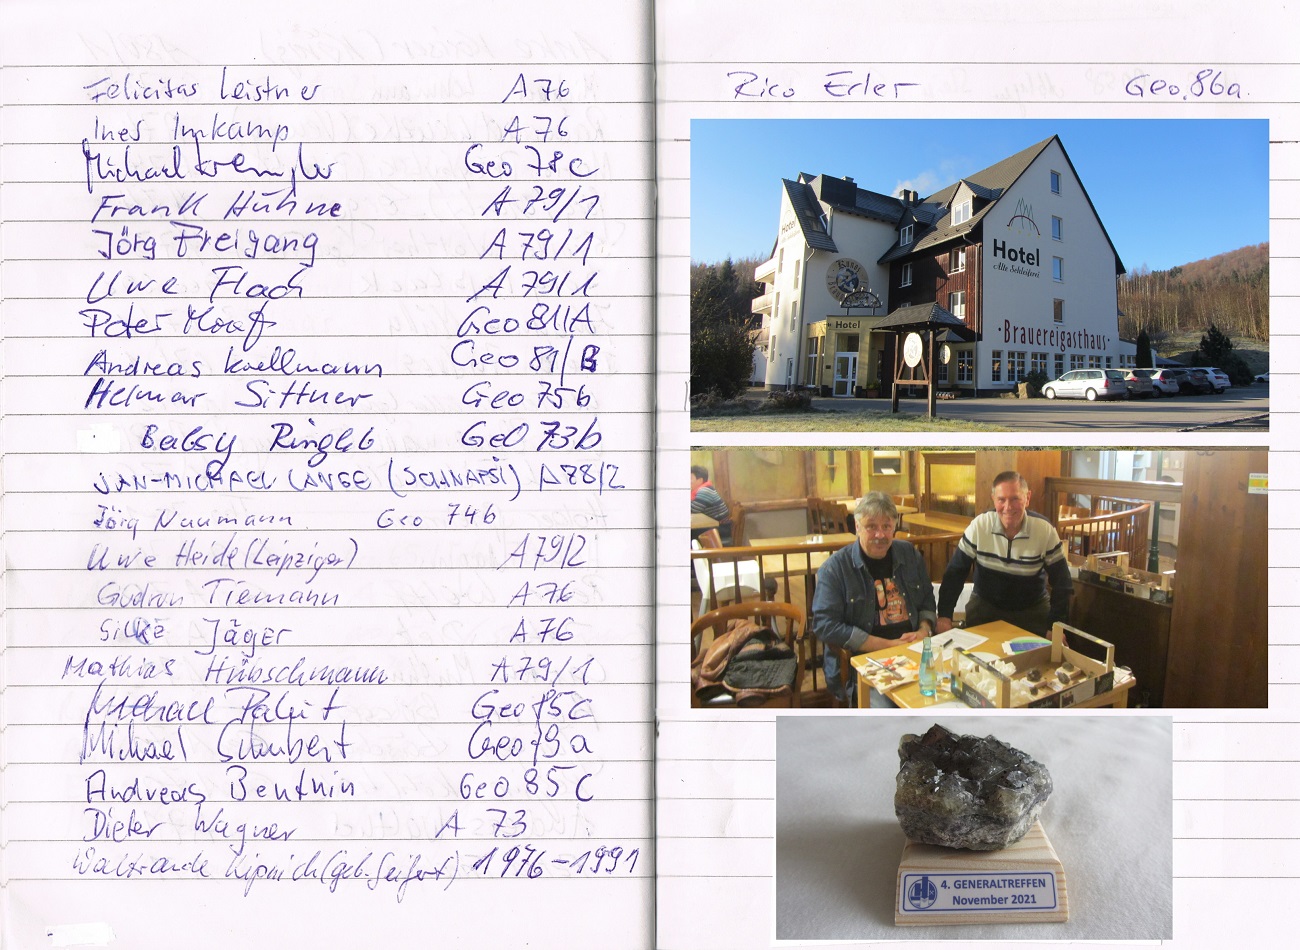 Felicitas Leistner A 76
Ines Imkamp A 76
Michael Geo 78c
Frank Hühne A 79/1
Jörg Freigang A 79/1
Uwe Flach A 79/1
Peter Geo 81/A
Andreas Kollmann Geo 81/B
Helmar Sittner Geo 75b
Babsy Ringleb Geo 73b
JAN-MICHAEL LANGE (SCHNAPSI) A78/2
Jörg Naumann Geo 74b
Uwe Heide (Leipziger) A79/2
Gudrun Tiemann A 76
Silke Jäger A 76
Mathias Hübschmann A79/1
Michael Geo 85c
Michael Schubert Geo 79a
Andreas Bentnin Geo 85C
Dieter Wagner A 73
Waltraude (geb. Seifert) 1976-1991
Rico Erler Geo.86a.
Hotel
Hotel
Alte Schleiferei
·Brauereigasthaus·
Hotel
4. GENERALTREFFEN
November 2021